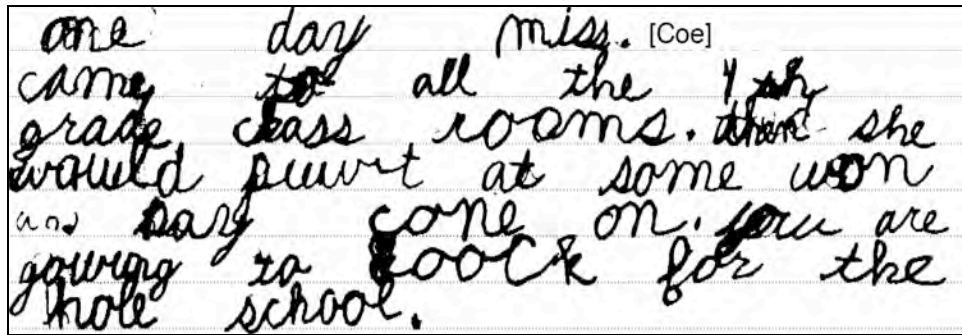 one day miss. [Coe]
came to all the 4th
grade class rooms. then she
would puwrt at some won
and say cone on. you are
gowing to coock for the
hole school.